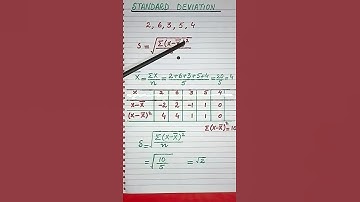 STANDARD DEVIATION
2, 6, 3, 5, 4
S = √Σ(x-x̄)²
X̄ = Σx/n = 2+6+3+5+4/5 = 20/5 = 4
x 2 6 3 5 4
x-x̄ -2 2 -1 1 0
(x-x̄)² 4 4 1 1 0
Σ(x-x̄)² = 10
S = √Σ(x-x̄)²/n
= √10/5 = √2